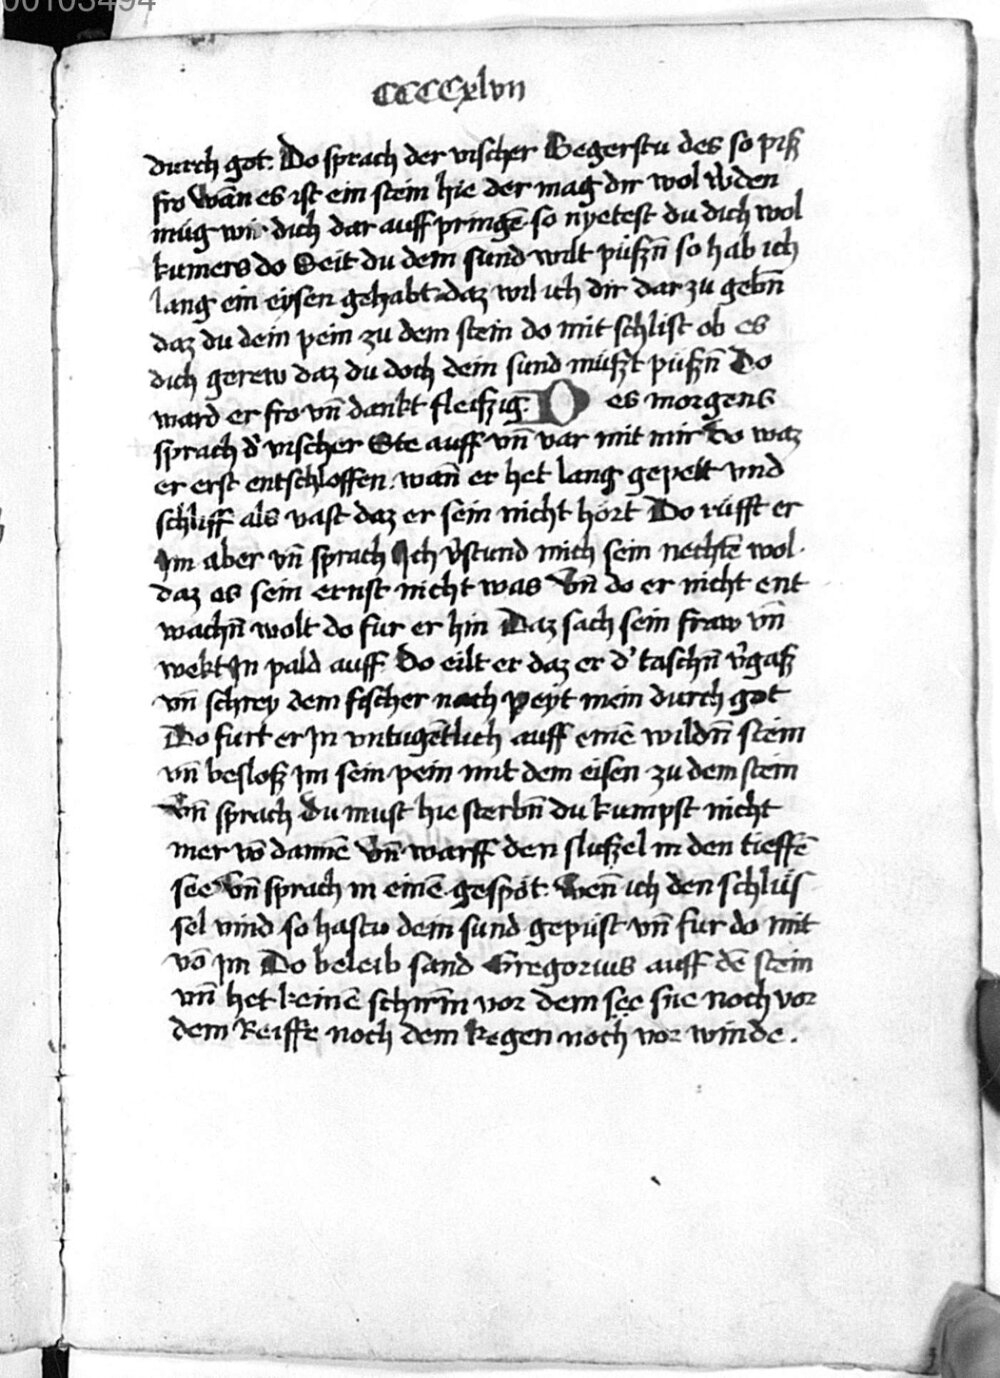 00103494
CCCCxlvii
durch got. Do sprach der vischer Begerstu des so piß
fro Wañ es ist ein stein hie der mag dir wol w̓den
müg wir dich dar auff pringē so nyetest du dich wol
kumers do Seit du dein sund wilt püßn̄ so hab ich
lang ein eysen gehabt daz wil ich dir dar zu gebn̄
daz du dein pein zu dem stein do mit schlist ob es
dich gerew daz du doch dein sund müßt püßn̄ Do
ward er fro vn̄ dankt fleißig. Des morgens
sprach d̓ vischer Ste auff vn̄ var mit mir do waz
er erst entschloffen. wañ er het lang gepett vnd
schliff als vast daz er sein nicht hört Do rüfft er
Im aber vn̄ sprach Ich v̓stund mich sein nechtē wol.
daz es sein ernst nicht was Vn̄ do er nicht ent
wachn̄ wolt do fur er hin Daz sach sein fraw vn̄
wekt In pald auff Do eilt er daz er d̓ taschn̄ v̓gaß
vn̄ schrey dem fischer nach peyt mein durch got
Do furt er In vntugētlich auff einē wildn̄ stein
vn̄ besloß im sein pein mit dem eisen zu dem stein
Vn̄ sprach Du must hie sterbn̄ du kumpst nicht
mer vō dannē Vn̄ warff den slüßel in den tieffē
see Vn̄ sprach in einē gespöt. Wen̄ ich den schlüs
sel vind so hastu dein sund gepüst vn̄ fur do mit
vō im Do beleib sand Gregorius auff dē stein
vn̄ het keinē schirm̄ vor dem see sne noch vor
dem Reiffe noch dem Regen noch vor winde.